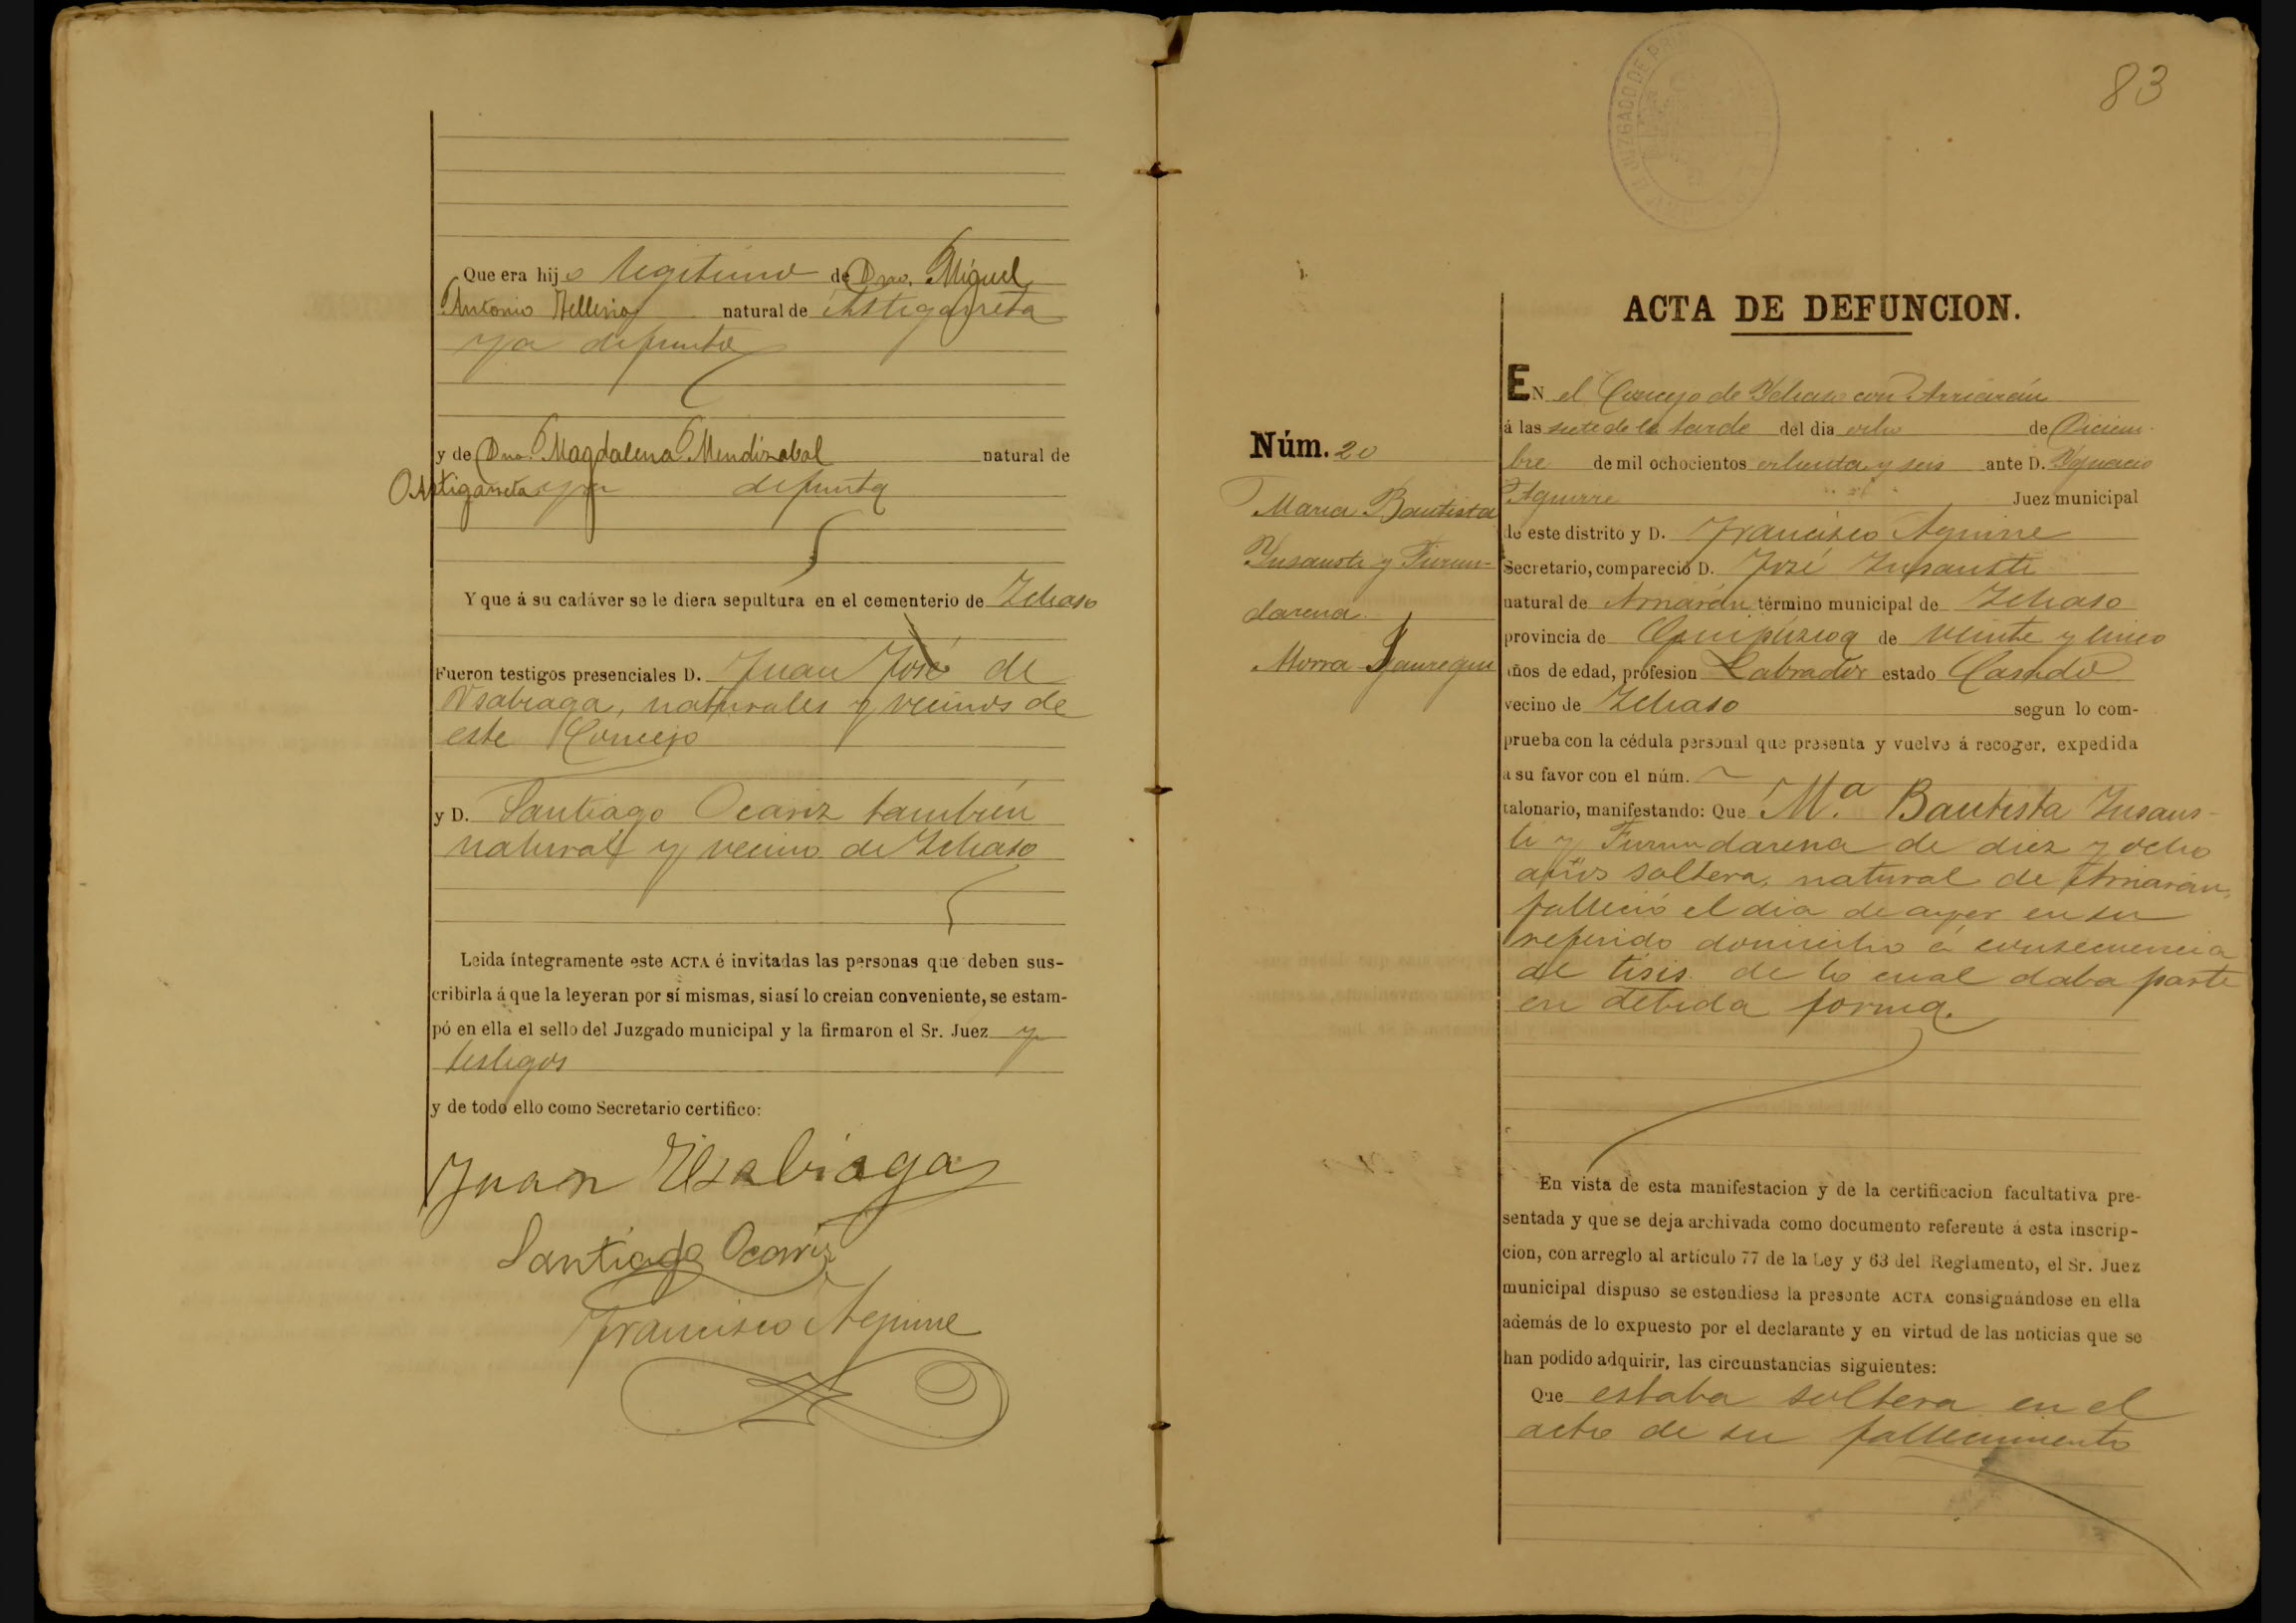 Que era hijo legitimo de Dn. Miguel
Antonio Telleria natural de Astigarreta
ya difunto
y de Dna. Magdalena Mendizabal natural de
Astigarreta ya difunta
Y que á su cadáver se le diera sepultura en el cementerio de Ichaso
Fueron testigos presenciales D. Juan José de
Usabiaga, naturales y vecinos de
este Concejo
y D. Santiago Ocariz también
natural y vecino de Ichaso
Leida íntegramente este ACTA é invitadas las personas que deben sus-
cribirla á que la leyeran por sí mismas, si así lo creian conveniente, se estam-
pó en ella el sello del Juzgado municipal y la firmaron el Sr. Juez y
testigos
y de todo ello como Secretario certifico:
Juan Usabiaga
Santiago Ocariz
Francisco Aguirre
83
JUZGADO DE
ACTA DE DEFUNCION.
Núm. 20
Maria Bautista
Insausti y Iurun-
darena
Morra Jauregui
EN el Concejo de Ichaso con Arriarán
á las siete de la tarde del dia ocho de Diciem-
bre de mil ochocientos ochenta y seis ante D. Ygnacio
Aguirre Juez municipal
de este distrito y D. Francisco Aguirre
Secretario, compareció D. José Insausti
natural de Arriarán término municipal de Ichaso
provincia de Guipúzcoa de veinte y cinco
años de edad, profesion Labrador estado Casado
vecino de Ichaso segun lo com-
prueba con la cédula personal que presenta y vuelve á recoger, expedida
a su favor con el núm.
talonario, manifestando: Que Mª Bautista Insaus-
ti y Iurundarena de diez y ocho
años soltera, natural de Arriarán,
falleció el dia de ayer en su
referido domicilio á consecuencia
de tisis de lo cual daba parte
en debida forma.
En vista de esta manifestacion y de la certificacion facultativa pre-
sentada y que se deja archivada como documento referente á esta inscrip-
cion, con arreglo al artículo 77 de la Ley y 63 del Reglamento, el Sr. Juez
municipal dispuso se estendiese la presente ACTA consignándose en ella
además de lo expuesto por el declarante y en virtud de las noticias que se
han podido adquirir, las circunstancias siguientes:
Que estaba soltera en el
acto de su fallecimiento